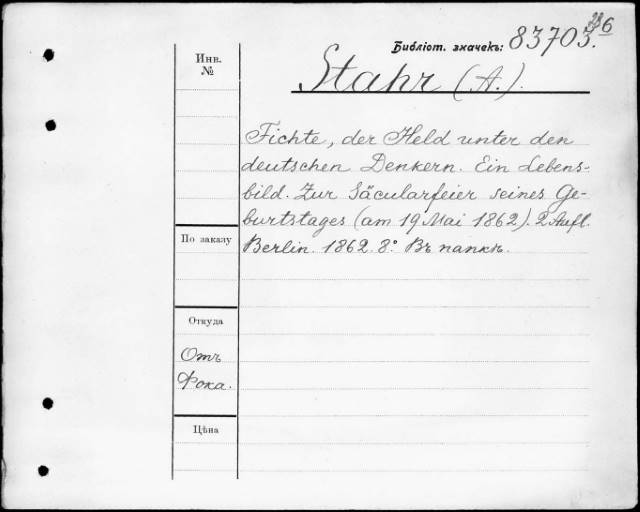 Библіот. значекъ: 83703.
Инв.
№
Stahr (A.).
Fichte, der Held unter den
deutschen Denkern. Ein Lebens-
bild. Zur Säcularfeier seines Ge-
burtstages (am 19 Mai 1862). 2 Aufl.
Berlin. 1862. 8°. Въ папкѣ.
По заказу
Откуда
Отъ
Фока.
Цѣна